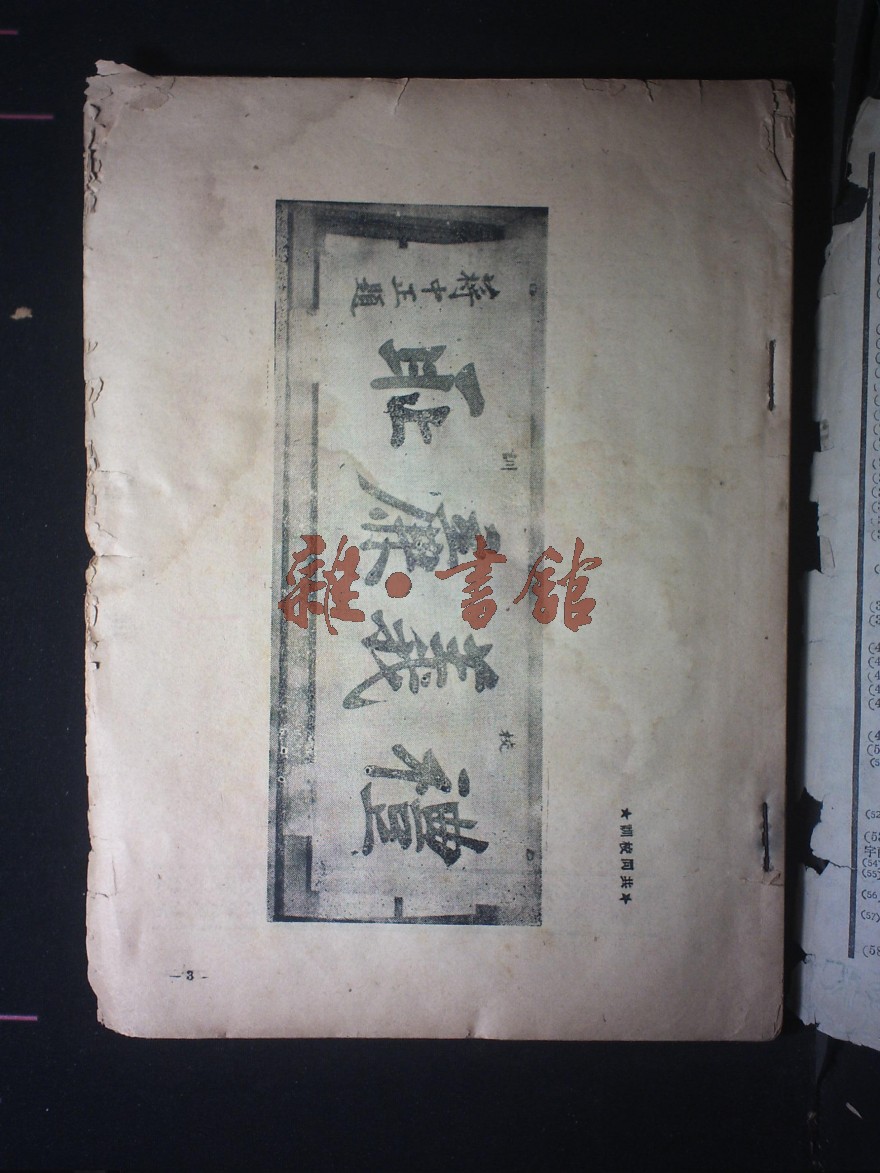 ★共同校訓★
校訓
禮義廉恥
蔣中正題
— 3 -
雜·書館
(54)
(55)
(56)
(57)